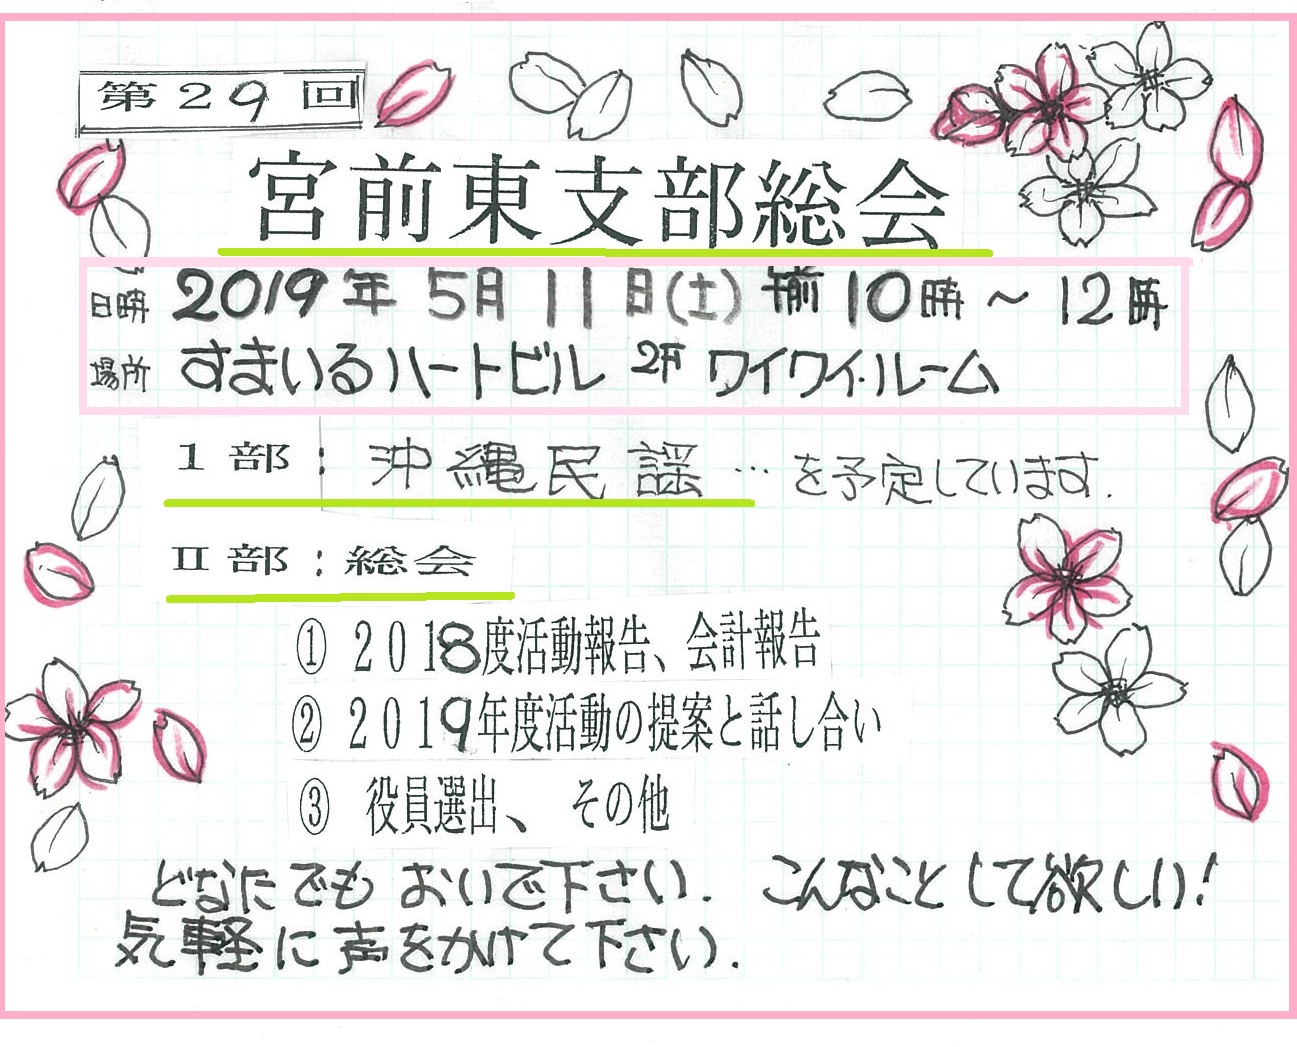 第29回
宮前東支部総会
日時 2019年 5月 11日(土) 前10時~12時
場所 すまいるハートビル 2F ワイワイ・ルーム
1部: 沖縄民謡…を予定しています.
II部:総会
① 2018度活動報告、会計報告
② 2019年度活動の提案と話し合い
③ 役員選出、 その他
どなたでも おいで下さい. こんなことして欲しい!
気軽に声をかけて下さい.